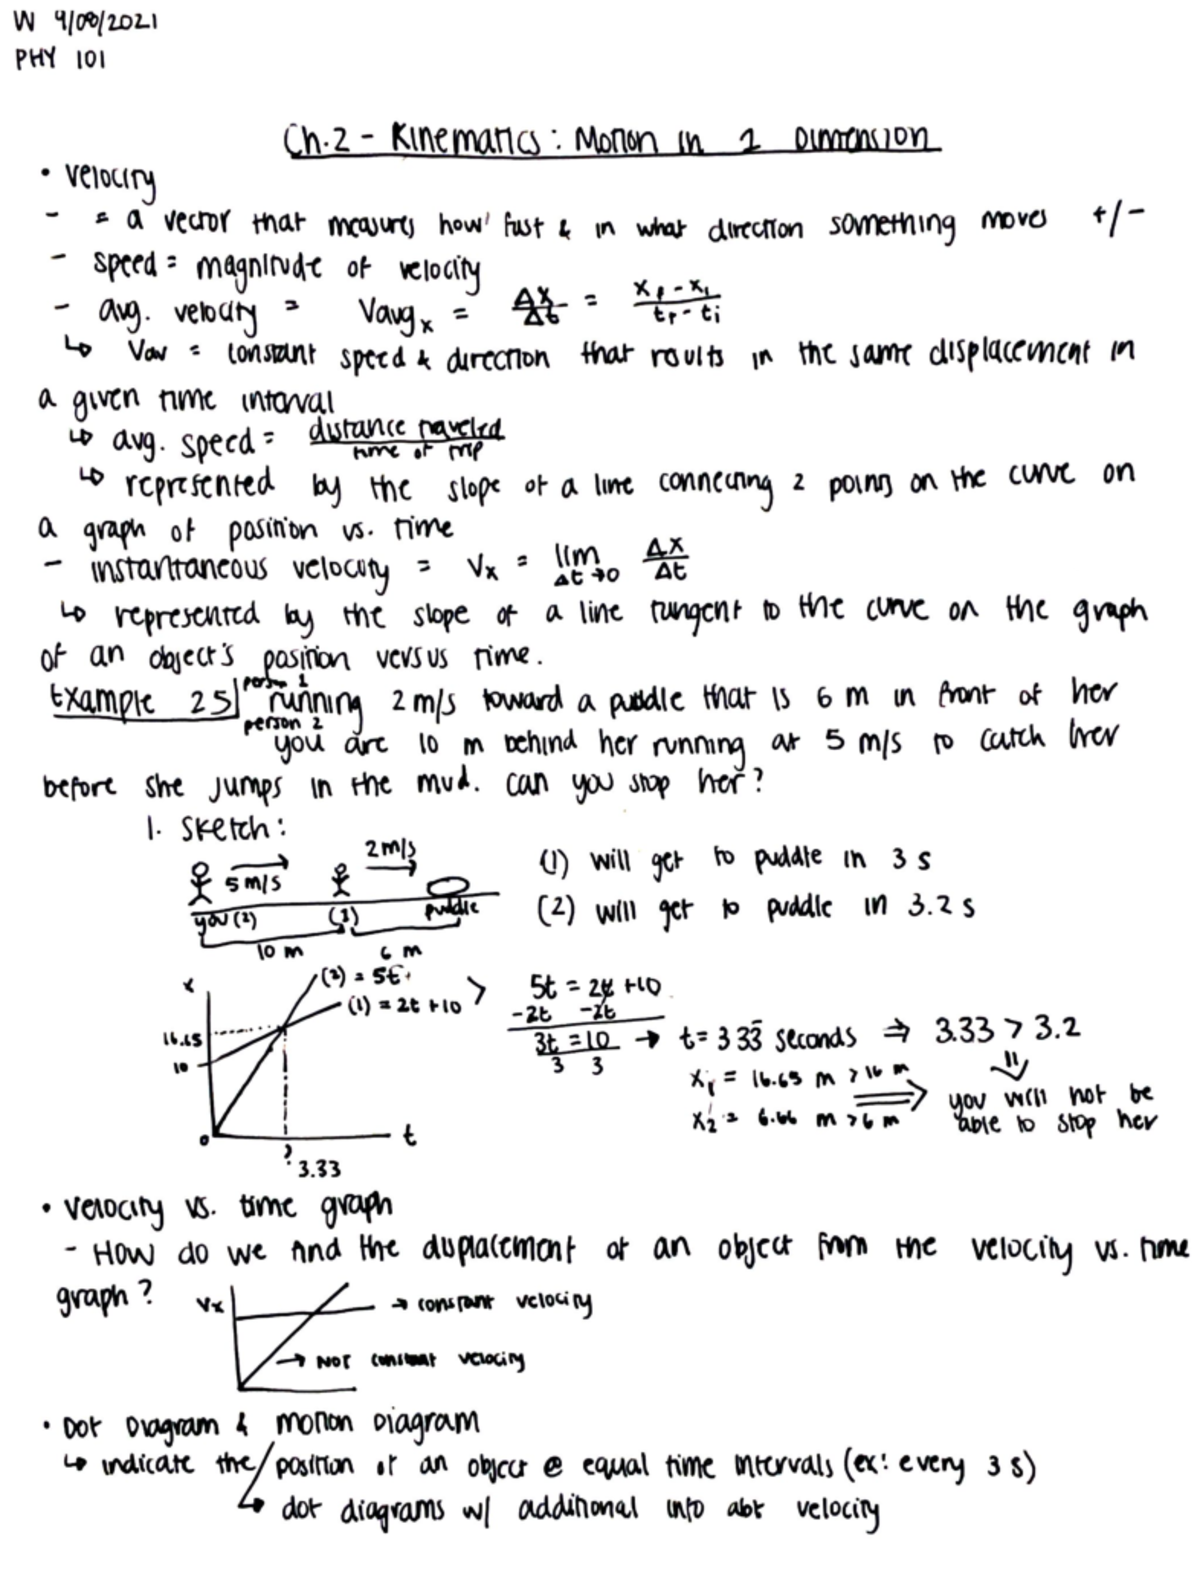 W 9/08/2021
PHY 101
Ch.2 - Kinematics: Motion in 1 Dimension
• velocity
- = a vector that measures how fast & in what direction something moves +/-
- speed = magnitude of velocity
- avg. velocity = Vavgx = Δx/Δt = xf - xi / tf - ti
↳ Vav = constant speed & direction that results in the same displacement in
a given time interval
↳ avg. speed = distance traveled / time of trip
↳ represented by the slope of a line connecting 2 points on the curve on
a graph of position vs. time
- instantaneous velocity = Vx = lim Δt→0 Δx/Δt
↳ represented by the slope of a line tangent to the curve on the graph
of an object's position versus time.
Example 25| person 1 running 2 m/s toward a puddle that is 6 m in front of her
person 2 you are 10 m behind her running at 5 m/s to catch her
before she jumps in the mud. can you stop her?
1. Sketch:
5 m/s 2 m/s
you (2) (1) puddle
10 m 6 m
(1) will get to puddle in 3 s
(2) will get to puddle in 3.2 s
x
(2) = 5t
(1) = 2t + 10
16.65
10
0
t
? 3.33
> 5t = 2t + 10
-2t -2t
3t = 10 → t = 3.33 seconds ⇒ 3.33 > 3.2
3 3
x1 = 16.65 m > 16 m
x2 = 6.66 m > 6 m
⇒ you will not be
able to stop her
• velocity vs. time graph
- How do we find the displacement of an object from the velocity vs. time
graph?
Vx
→ constant velocity
→ NOT constant velocity
• Dot Diagram & motion Diagram
↳ indicate the position of an object @ equal time intervals (ex: every 3 s)
↳ dot diagrams w/ additional info abt velocity